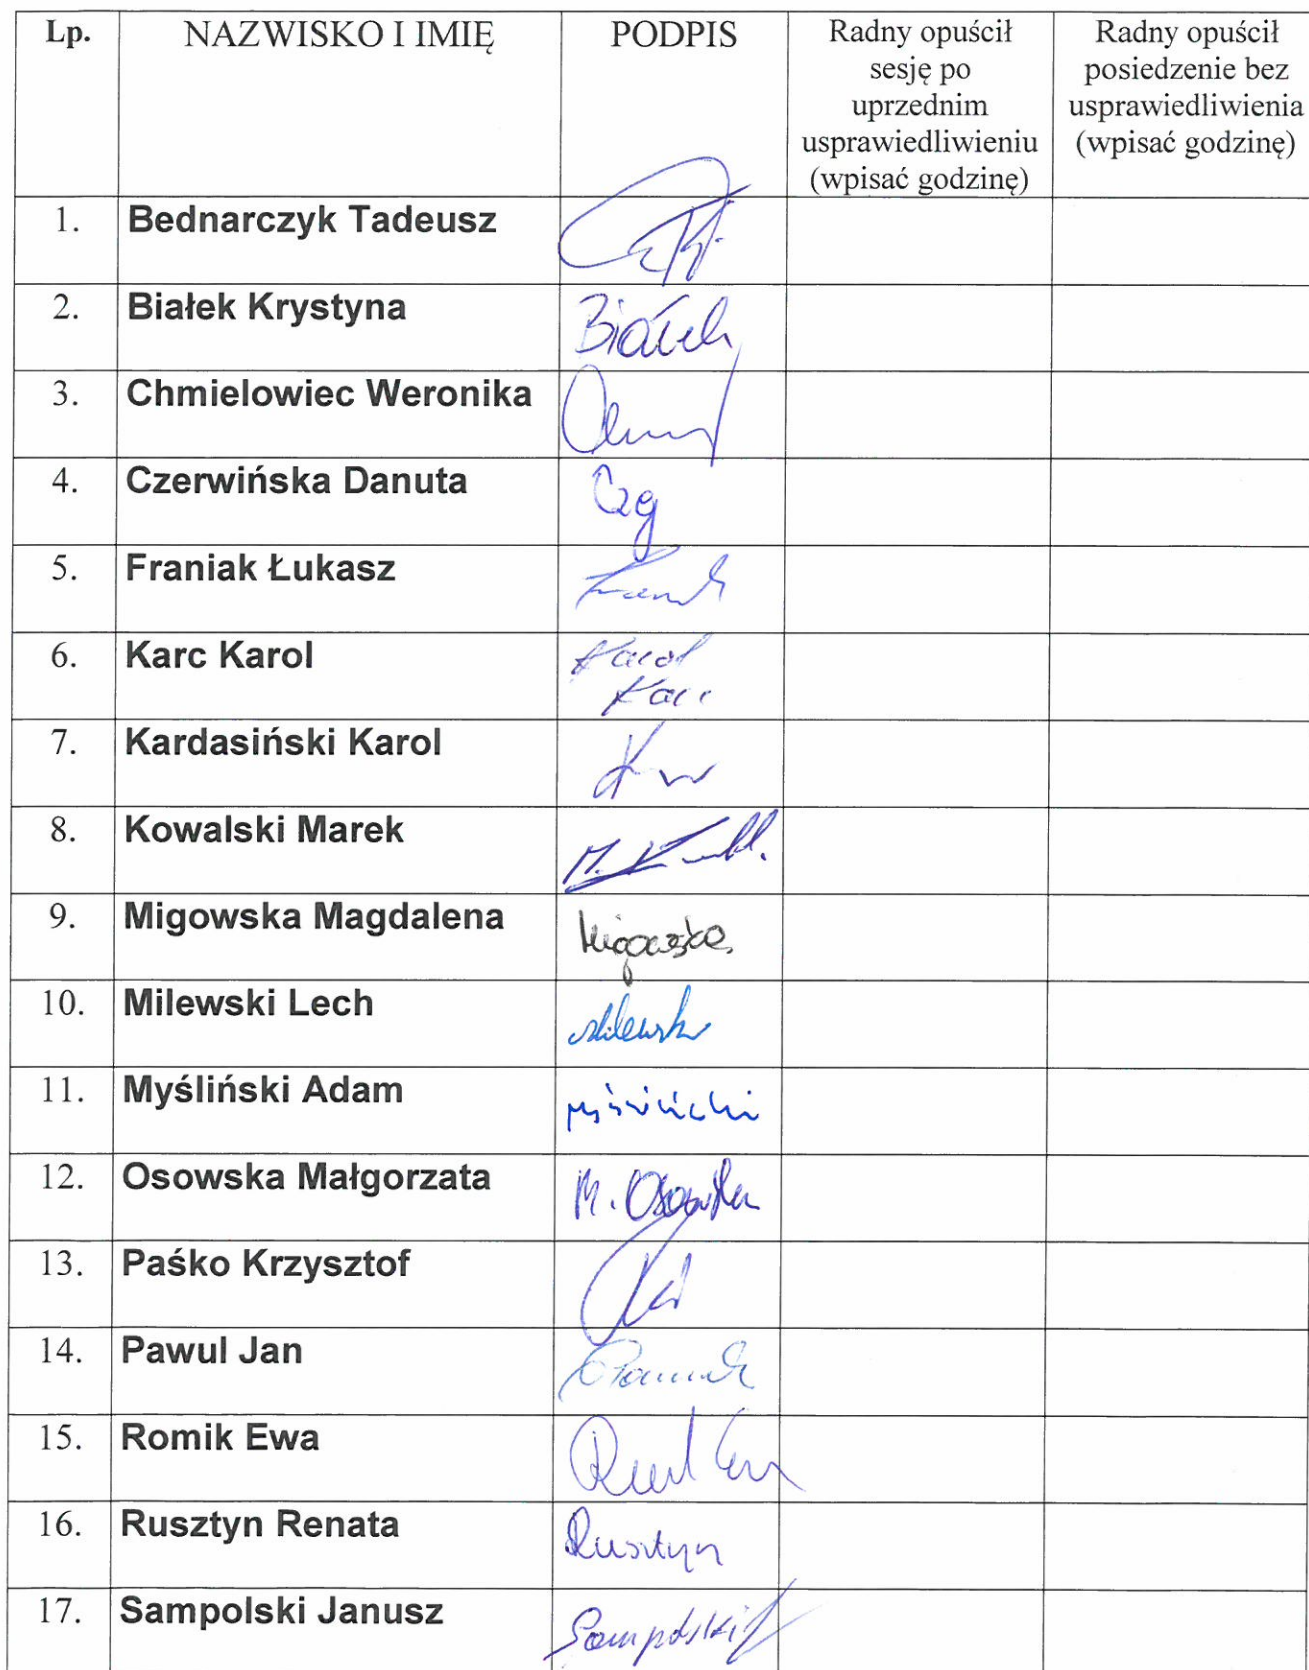 Lp. NAZWISKO I IMIĘ PODPIS Radny opuścił sesję po uprzednim usprawiedliwieniu (wpisać godzinę) Radny opuścił posiedzenie bez usprawiedliwienia (wpisać godzinę)
1. Bednarczyk Tadeusz
2. Białek Krystyna Białek
3. Chmielowiec Weronika
4. Czerwińska Danuta
5. Franiak Łukasz
6. Karc Karol Karol Karc
7. Kardasiński Karol
8. Kowalski Marek
9. Migowska Magdalena Migowska
10. Milewski Lech Milewski
11. Myśliński Adam Myśliński
12. Osowska Małgorzata M. Osowska
13. Paśko Krzysztof
14. Pawul Jan
15. Romik Ewa
16. Rusztyn Renata Rusztyn
17. Sampolski Janusz Sampolski